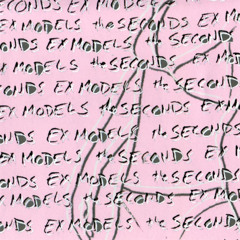 CONDS EX MODELS the SECONDS EX MODELS
CONDS EX MODELS the SECONDS EX
EX MODELS the SECONDS EX MODELS
CONDS EX MODELS the SECONDS EX M
EX MODELS the SECONDS EX MODELS
ONDS EX MODELS the SECONDS
EX MODELS the SECONDS EX M
CONDS EX MODELS the SECONDS
EX MODELS the SECONDS EX MO
ONDS EX MODELS the SECONDS